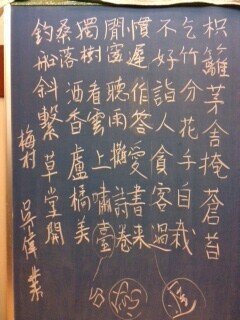 枳籬茅舍掩蒼苔
乞竹分花手自栽
不好詣人貪客過
慣遲作答愛書来
閒窗聽雨攤詩卷
獨樹看雲上嘯臺
桑落酒香盧橘美
釣船斜繫草堂開
梅村 吳偉業